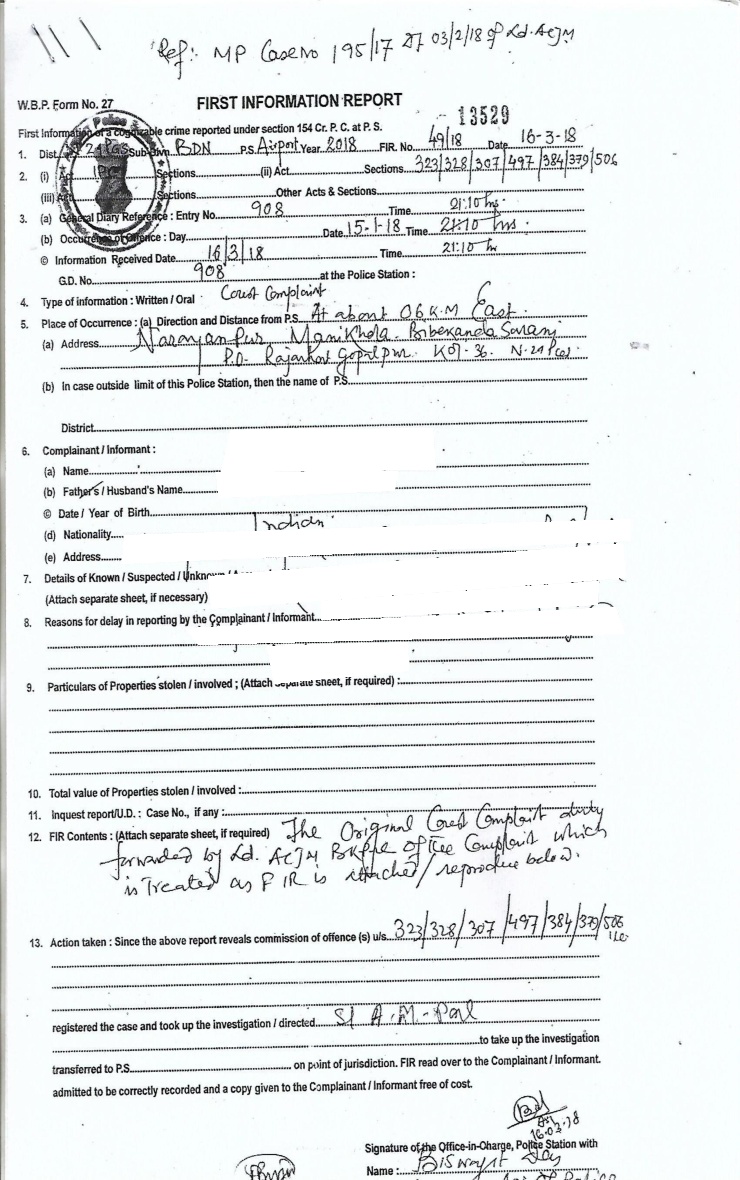 Ref:- MP Case no 195/17 dt 03/2/18 of Ld. ACJM
W.B.P. Form No. 27
FIRST INFORMATION REPORT
13529
First Information of a cognizable crime reported under section 154 Cr. P. C. at P. S.
1. Dist. 24 PGS Sub-Divn. BDN P.S. Airport Year 2018 FIR. No. 49/18 Date 16-3-18
2. (i) Act IPC Sections (ii) Act Sections 323/328/307/497/384/379/506
(iii) Act Sections Other Acts & Sections
3. (a) General Diary Reference : Entry No. 908 Time 21:10 hrs.
(b) Occurrence of Offence : Day Date 15-1-18 Time 21:10 hrs.
© Information Received Date 16/3/18 Time 21:10 hr
G.D. No. 908 at the Police Station :
4. Type of information : Written / Oral Court Complaint
5. Place of Occurrence : (a) Direction and Distance from P.S. At about 06 K.M East.
(a) Address Narayanpur Manikhola Bibekananda Sarani
P.O- Rajarhat Gopalpur. Kol-36. N-24 Pgs.
(b) In case outside limit of this Police Station, then the name of P.S.
District
6. Complainant / Informant :
(a) Name
(b) Father's / Husband's Name
© Date / Year of Birth
(d) Nationality Indian
(e) Address
7. Details of Known / Suspected /
(Attach separate sheet, if necessary)
8. Reasons for delay in reporting by the Complainant / Informant
9. Particulars of Properties stolen / involved ; (Attach separate sheet, if required) :
10. Total value of Properties stolen / involved :
11. Inquest report/U.D. : Case No., if any :
12. FIR Contents : (Attach separate sheet, if required) The Original Court Complaint duly
forwarded by Ld. ACJM of the Complaint which
is Treated as FIR is attached / reproduce below.
13. Action taken : Since the above report reveals commission of offence (s) u/s 323/328/307/497/384/379/506
registered the case and took up the investigation / directed SI A.M. Pal
to take up the investigation
transferred to P.S. on point of jurisdiction. FIR read over to the Complainant / Informant.
admitted to be correctly recorded and a copy given to the Complainant / Informant free of cost.
16.03.18
Signature of the Office-in-Charge, Police Station with
Name : Biswajit Dey